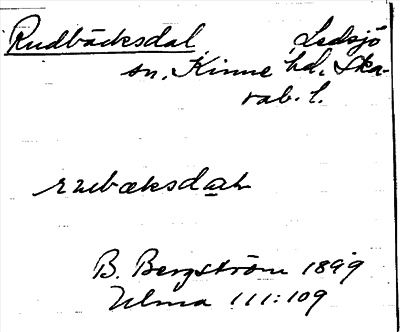 Rudbäcksdal, Ledsjö
sn, Kinne hd, Ska-
rab. l.
B. Bergström 1899
Ulma 111:109